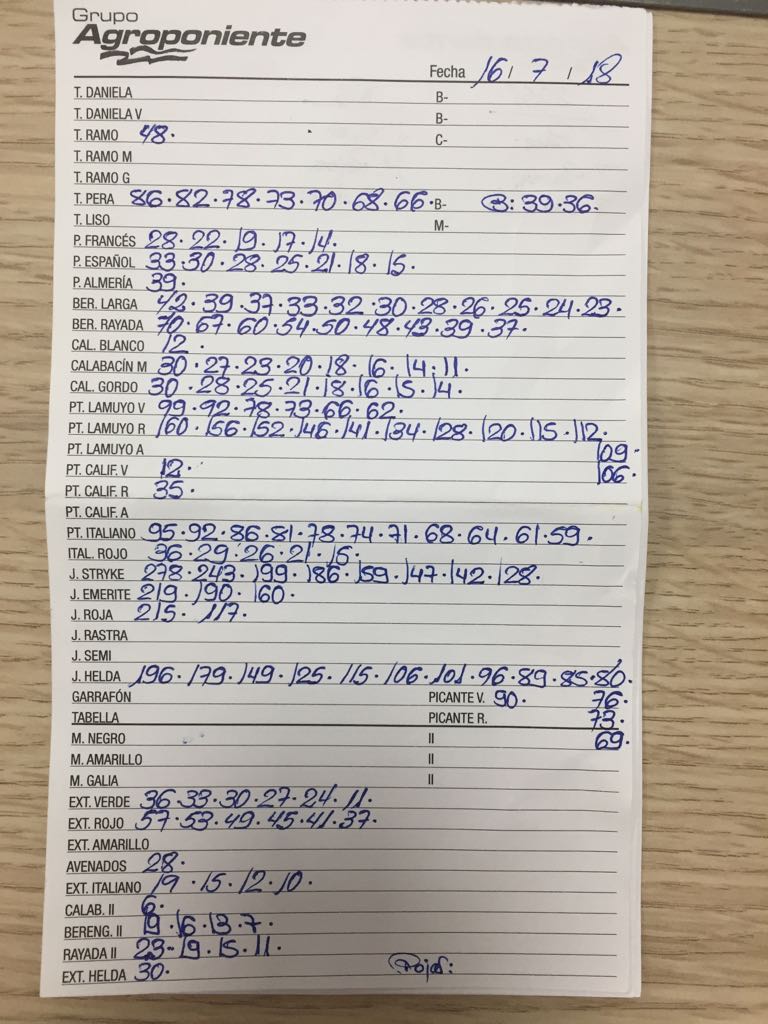 Grupo
Agroponiente
Fecha 16 / 7 / 18
T. DANIELA B-
T. DANIELA V B-
T. RAMO 48. C-
T. RAMO M
T. RAMO G
T. PERA 86.82.78.73.70.68.66. B- B: 39.36.
T. LISO M-
P. FRANCÉS 28.22.19.17.14.
P. ESPAÑOL 33.30.28.25.21.18.15.
P. ALMERÍA 39.
BER. LARGA 42.39.37.33.32.30.28.26.25.24.23.
BER. RAYADA 70.67.60.54.50.48.43.39.37.
CAL. BLANCO 12.
CALABACÍN M 30.27.23.20.18.16.14.11.
CAL. GORDO 30.28.25.21.18.16.15.14.
PT. LAMUYO V 99.92.78.73.66.62.
PT. LAMUYO R 160.156.152.146.141.134.128.120.115.112.
PT. LAMUYO A 109.
PT. CALIF. V 12. 106.
PT. CALIF. R 35.
PT. CALIF. A
PT. ITALIANO 95.92.86.81.78.74.71.68.64.61.59.
ITAL. ROJO 36.29.26.21.16.
J. STRYKE 278.243.199.186.159.147.142.128.
J. EMERITE 219.190.160.
J. ROJA 215.117.
J. RASTRA
J. SEMI
J. HELDA 196.179.149.125.115.106.101.96.89.85.80.
GARRAFÓN PICANTE V. 90. 76.
TABELLA PICANTE R. 73.
M. NEGRO II 69.
M. AMARILLO II
M. GALIA II
EXT. VERDE 36.33.30.27.24.11.
EXT. ROJO 57.53.49.45.41.37.
EXT. AMARILLO
AVENADOS 28.
EXT. ITALIANO 19.15.12.10.
CALAB. II 6.
BERENG. II 19.16.13.7.
RAYADA II 23.19.15.11.
EXT. HELDA 30.